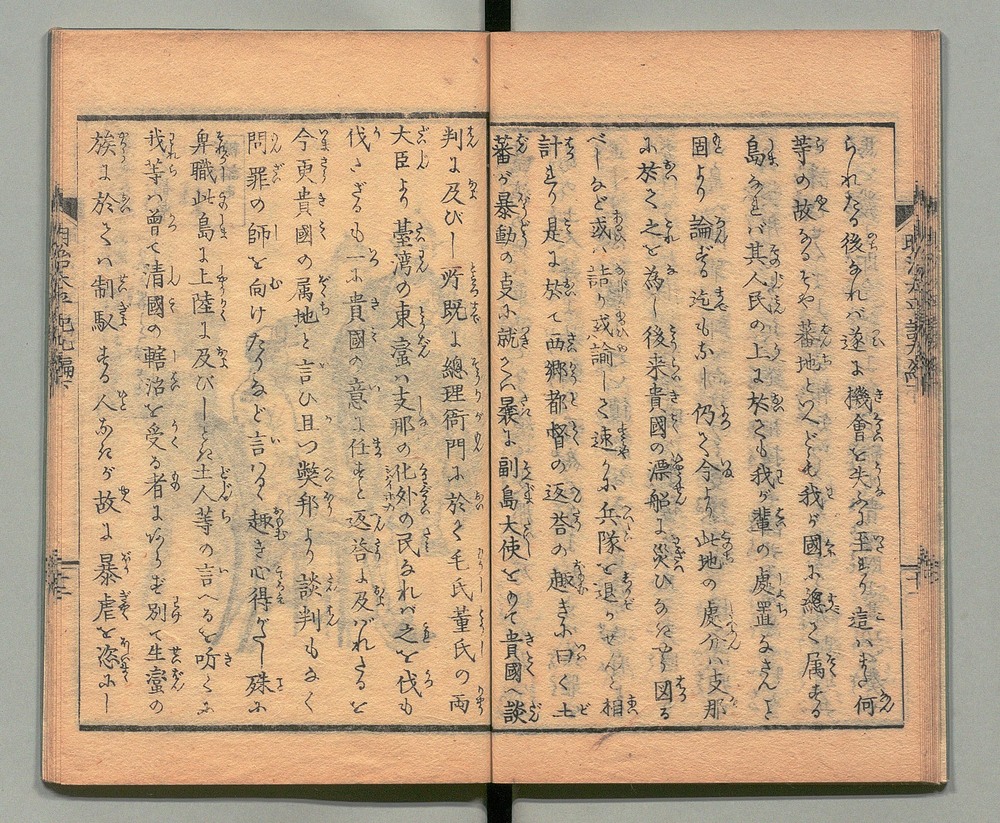 られたる後なれバ遂に機會を失ふに至り這ハまた何
等の故なるぞや蕃地といへども我が國に總て属する
島なれバ其人民の上に於ても我が輩の處置なさんこと
固より論ずる迄もなし仍て今より此地の處分ハ支那
に於て之を為し後来貴國の漂船に災ひなきやう図る
べしなど或ハ詰り或ハ諭して速かに兵隊を退かせんと相
計れり是に於て西郷都督の返荅の趣きに曰く土
蕃が暴動の支に就てハ曩に副島大使をもて貴國へ談
判に及びし所既に總理衙門に於て毛氏董氏の両
大臣より臺湾の東蛮ハ支那の化外の民なれバ之を伐も
伐ざるも一に貴國の意に任すと返荅に及バれたるを
今更貴國の属地と言ひ且つ弊邦より談判もなく
問罪の師を向けたりなど言はるゝ趣き心得がたし殊に
卑職此島に上陸に及びしとき土人等の言へるを听くに
我等ハ曽て清國の轄治を受る者にあらず別て生蛮の
族に於てハ制馭する人なきが故に暴虐を恣にし